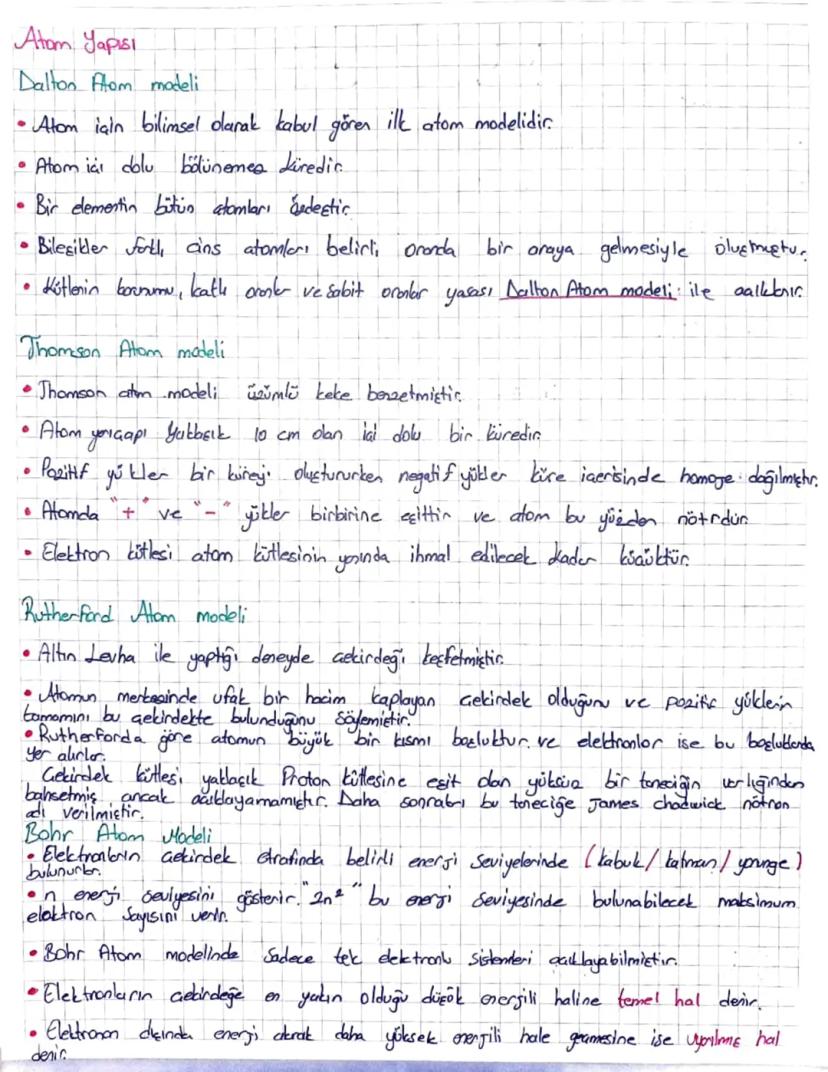 Atom Yapısı
Dalton Atom modeli
• Atom için bilimsel olarak kabul gören ilk atom modelidir.
• Atom içi dolu bölünemez küredir.
• Bir elementin bütün atomları özdeştir.
• Bileşikler farklı cins atomları belirli oranda bir araya gelmesiyle oluşmuştur.
• Kütlenin korunumu, katlı oranlar ve sabit oranlar yasası Dalton Atom modeli ile açıklanır.
Thomson Atom modeli
• Thomson atom modeli üzümlü keke benzetmiştir.
• Atom yarıçapı Yaklaşık 10 cm olan içi dolu bir küredir.
• Pozitif yükler bir küreyi oluştururken negatif yükler küre içerisinde homoje dağılmıştır.
• Atomda "+" ve "-" yükler birbirine eşittir ve atom bu yüzden nötrdür.
• Elektron kütlesi atom kütlesinin yanında ihmal edilecek kadar küçüktür.
Rutherford Atom modeli
• Altın Levha ile yaptığı deneyde çekirdeği keşfetmiştir.
• Atomun merkezinde ufak bir hacim kaplayan çekirdek olduğunu ve pozitif yüklerin
tamamını bu çekirdekte bulunduğunu söylemiştir.
• Rutherforda göre atomun büyük bir kısmı boşluktur ve elektronlar ise bu boşluklarda
yer alırlar.
Çekirdek kütlesi yaklaşık Proton kütlesine eşit olan yüksüz bir taneciğin varlığından
bahsetmiş ancak açıklayamamıştır. Daha sonraları bu taneciğe James chadwick nötron
adı verilmiştir.
Bohr Atom Modeli
• Elektronların çekirdek etrafında belirli enerji seviyelerinde (kabuk/katman/yörünge)
bulunurlar.
• n enerji seviyesini gösterir. "2n²" bu enerji seviyesinde bulunabilecek maksimum
elektron sayısını verir.
• Bohr Atom modelinde sadece tek elektronlu sistemleri açıklayabilmiştir.
• Elektronların çekirdeğe en yakın olduğu düşük enerjili haline temel hal denir.
• Elektronun dışında enerji alarak daha yüksek enerjili hale geçmesine ise uyarılmış hal
denir.